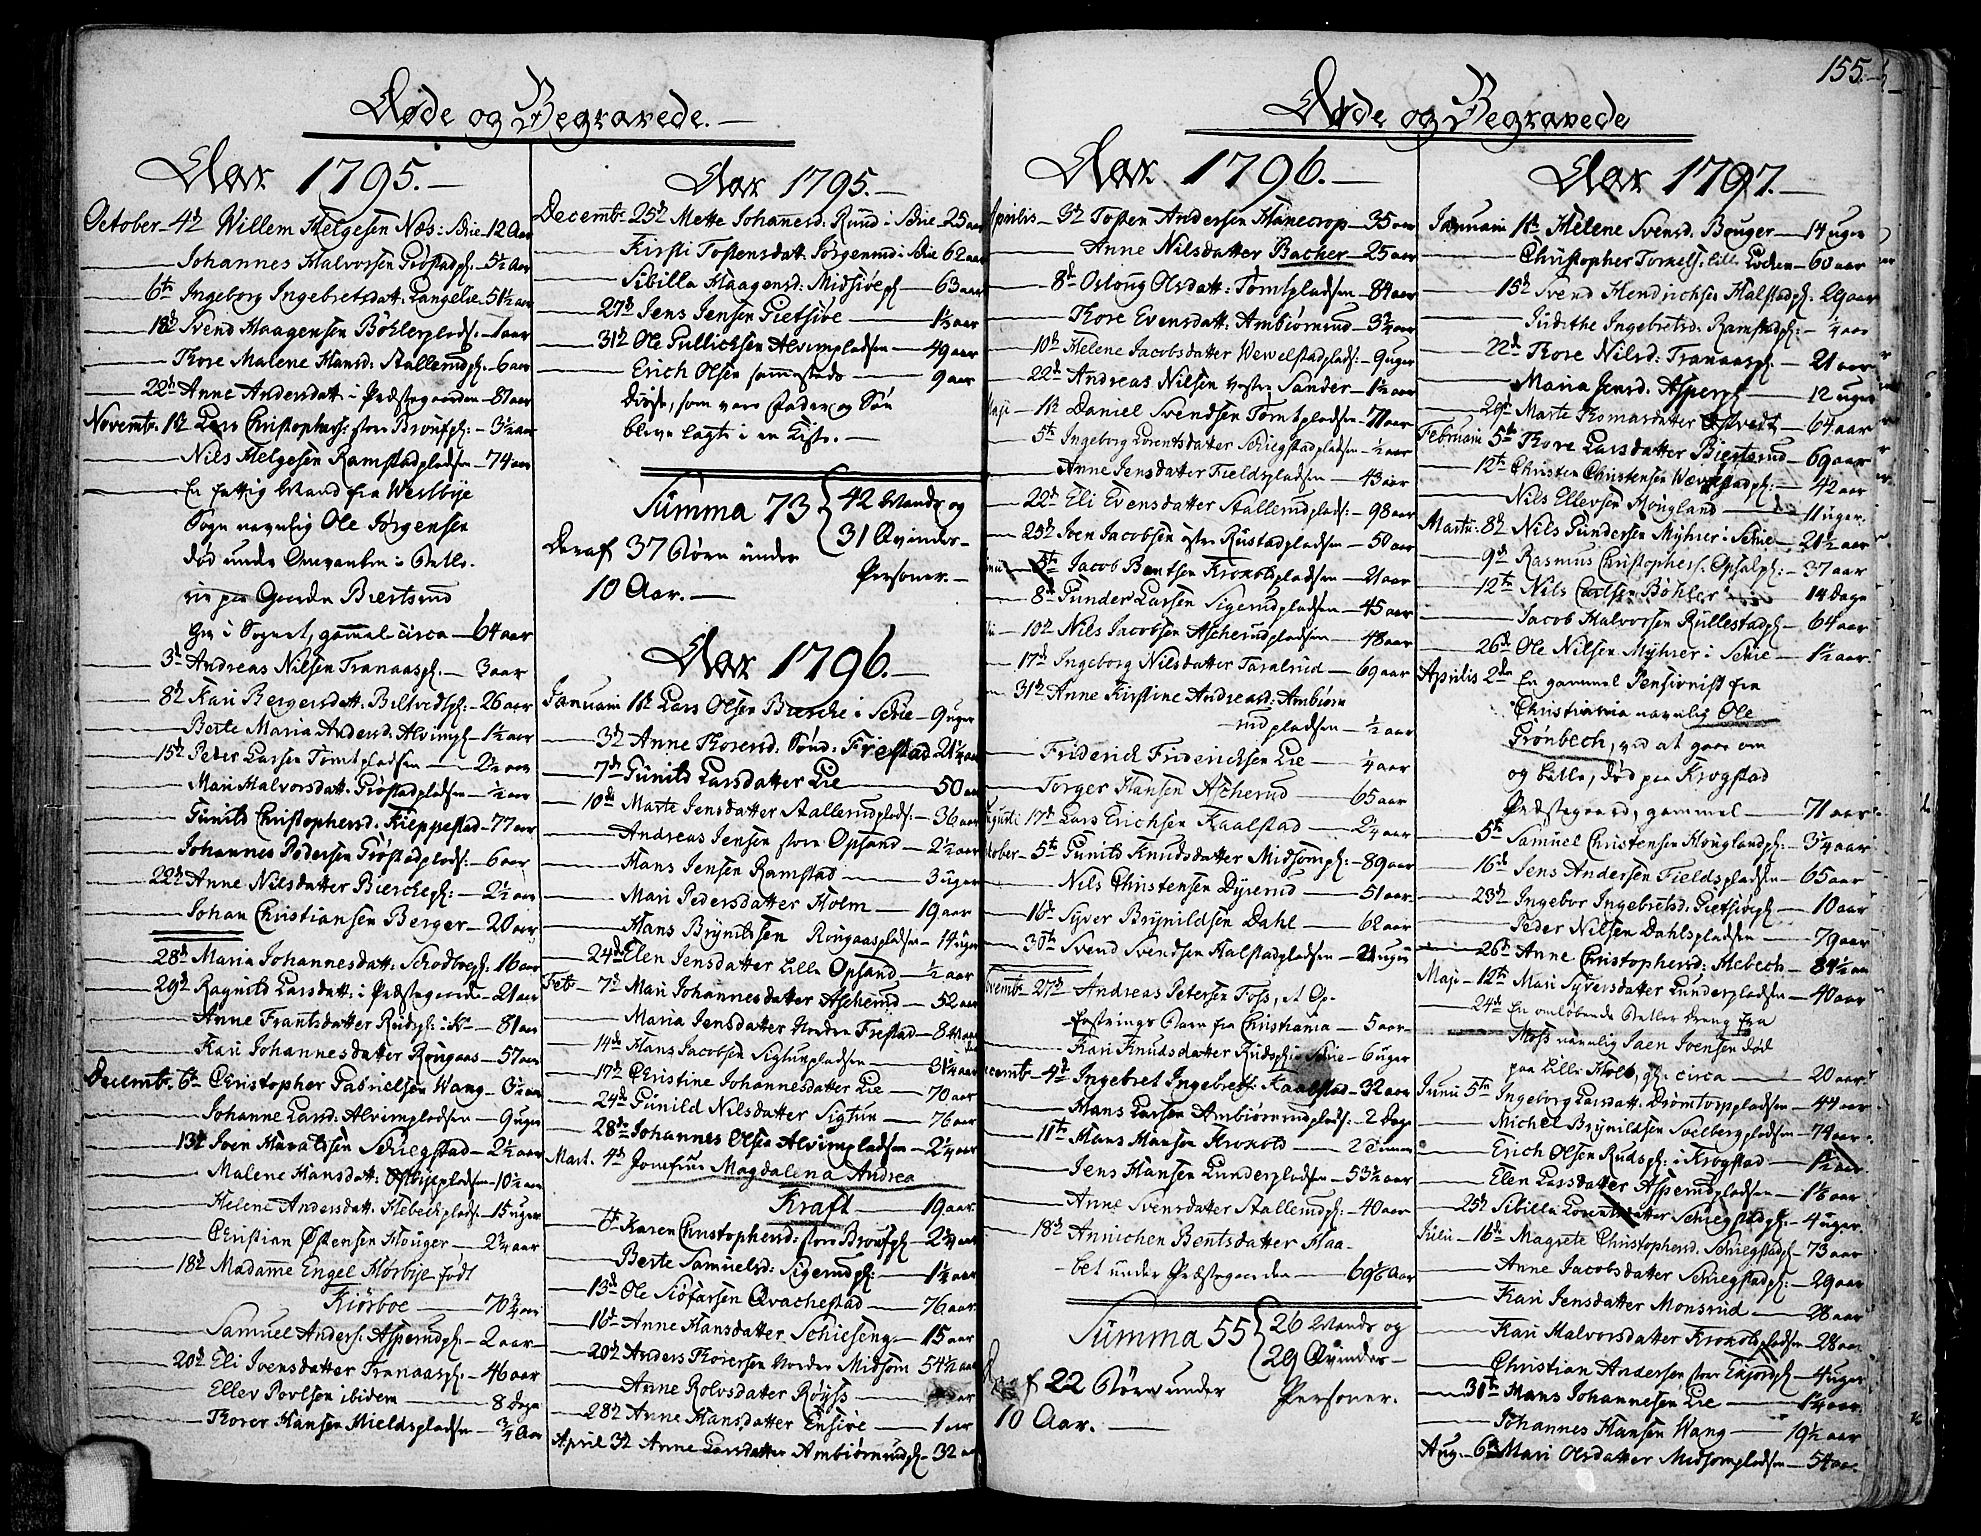 Døde og Begravede.
Aar 1795.
October 4de Willem Helgesen Næs i Schie 12 Aar
Johannes Halvorsen Grøstadpl: 5½ Aar
6te Ingeborg Ingebretsdatt: Langelie 51½ aar
18de Svend Haagensen Bøhlerplads: 1 aar
Thore Malene Hansd: Aallerudpl: 6 aar
22de Anne Andersdatt: i Præstegaarden 87 aar
Novembr: 1ste Lars Christophers: store Brønspl: 3½ aar
Nils Helgesen Ramstadpladsen 74 aar
En fattig Mand fra Westbye
Sogn navnlig Ole Jørgensen
død under Omvanken i Betle-
rie paa Gaarden Biertsrud
her i Sognet, gammel circa 64 aar
3de Andreas Nilsen Tranaaspl. 3 aar
8de Kari Bergersdatt: Biltvedtpl: 26 aar
Berte Maria Andersd: Alvimpl: 1½ aar
15de Peder Larsen Tomtpladsen 2½ aar
Mari Halvorsdatt: Grøstadpladsen ½ aar
Gunild Christophersd: Kieppestad 77 aar
Johannes Pedersen Grøstadplads: 6 aar
22de Anne Nilsdatter Bierchepl: 2½ aar
Johan Christiansen Berger 20 aar
28de Maria Johannesdatt: Schodbopl: 16 aar
29de Ragnild Larsdatt: i Præstegaarde 21 aar
Anne Frantsdatter Rudspl: i Kr 81 aar
Kari Johannesdatter Rongaas 57 aar
Decembr: 6te Christopher Gabrielsen Wang 3½ aar
Johanne Larsd: Alvimpladsen 9 uger
13de Joen Haraldsen Schiegstad 2½ aar
Malene Hansdatt: Østbyepladsen 10½ aar
Helene Andersdatt: Hebechplads: 15 uger
Christian Østensen Houger 2¾ aar
18de Madamme Engel Hørbye født
Kiørboe 70¾ aar
Samuel Anders: Asperudpl: 2 aar
20de Eli Ivensdatter Tranaaspl: 46 aar
Ellev Povlsen ibidem 8 dage
Thorer Hansen Hieldspladsen ¾ Aar
Aar 1795.
Decembr: 25de Mette Johanesd: Rund i Schie 25 aar
Kirsti Tostensdatt: Jørgenrud i Schie 62 aar
Sibilla Haagensd: Midsiøepl 63 aar
27de Jens Jensen Gietsiøe 1½ aar
31te Ole Gullichsen Alvimpladsen 49 aar
Erich Olsen sammestads 9 aar
Disse, som vare Fader og Søn
bleve lagte i en Kiste.
Summa 73 { 42 Mands og
31 Qvinder-
Personer.
Deraf 37 Børn under
10 Aar.
Aar 1796.
Januarii 1ste Lars Olsen Bierche i Schie 9 uger
3de Anne Thoresd: Sønd: Frestad 21¼ aar
7de Gunild Larsdatter Lie 50 aar
10de Marte Jensdatter Aallerudplads: 36 aar
Andreas Jensen store Opsand 2½ aar
Hans Jensen Ramstad 3 uger
Mari Pedersdatter Holm 19 aar
Hans Brynildsen Rongaaspladsen 14 uger
24de Elen Jensdatter Lille Opsand ½ aar
Febr 7de Mari Johannesdatter Ascherud 52 aar
Maria Jensdatter Nordre Frestad
14de Hans Jacobsen Sigtunpladsen 31¼ aar
17de Christine Johannesdatter Lie 70 aar
24de Gunild Nilsdatter Sigtun 76 aar
28de Johannes Olsen Alvimpladsen 2¼ aar
Mart. 4de Jomfrue Magdalena Andrea
Kraft 19 aar
6te Karen Christophersd: store Brønspl 2¾ aar
Berte Samuelsd: Sigerudpl: 1½ aar
13de Ole Siøfarsen Qvachestad 76 aar
16de Anne Hansdatter Schieseng 15 aar
20de Anders Thorersen Nordre Midsem 54½ aar
Anne Rolvsdatter Røyss aar
28de Anne Hansdatter Ensiøe 1 aar
April 3de Anne Larsdatter Ambiørnrudpl 32 aar
155.
Døde og Begravede
Aar 1796.
Aprilis 3de Tosten Andersen Hanecrop 35 aar
Anne Nilsdatter Bacher 25 aar
8de Osloug Olsdatt: Tomtpladsen 84 aar
Thore Evensdatt: Ambiørnrud 3¾ aar
10de Helene Jacobsdatter Wevelstadplads: 9 uger
22de Andreas Nilsen vestre Sander 1½ aar
Maji 1ste Daniel Svendsen Tomtpladsen 71 aar
5te Ingeborg Lorentsdatter Schiegstadpladsen ½ aar
Anne Jensdatter Fieldspladsen 43 aar
22de Eli Evensdatter Aallerudplads: 98 aar
25de Joen Jacobsen østre Rustadpladsen 50 aar
5te Jacob Bentsen Kroxolspladsen 21 aar
8de Gunder Larsen Sigerudpladsen 45 aar
10de Nils Jacobsen Ascherudpladsen 48 aar
17de Ingeborg Nilsdatter Taralrud 69 aar
31te Anne Kirstine Andreasd: Ambiørn
rudpladsen ½ aar
Friderich Friderichsen Lie ¼ aar
Torger Hansen Ascherud 65 aar
Augusti 17de Lars Erichsen Kaalstad 2¼ aar
October 5te Gunild Knudsdatter Midsompl: 89 aar
Nils Christensen Dyrerud 51 aar
16de Syver Brynildsen Dahl 62 aar
30te Svend Svendsen Halstadpladsen 21 uger
Novembr 27de Andreas Petersen Foss, et Op-
fostrings Barn fra Christiania 5 aar
Kari Knudsdatter Rudspl: i Schie 6 uger
Decembr 4de Ingebret Ingebrets: Kaalstad 32 aar
Hans Larsen Ambiørnrudplads: 2 Dage
11te Hans Hansen Kroxold 2 Timer
Jens Hansen Lunderpladsen 53½ aar
Anne Svensdatter Aallerudpl: 40 aar
18de Annichen Bentsdatter Haa-
bet under Præstegaarden 69½ Aar
Summa 55 { 26 Mands og
29 Qvinder-
Personer.
Deraf 22 Børn under
10 Aar.
Aar 1797.
Januarii 1ste Helene Svensd: Bouger 14 uger
Christopher Torkels: lille Lochen 60 aar
15de Svend Hendrichsen Halstadpl: 29 aar
Judithe Ingebretsd: Ramstadpl: ¼ aar
22de Thore Nilsd: Tranaaspl: 21 aar
Maria Jensd: Asperpl 12 uger
29de Marte Thomasdatter Østvedt 64 aar
Februarii 5te Thore Larsdatter Biertsrud 69 aar
12te Christen Christensen Wevelstadpl: 42 aar
Nils Ellevsen Hougland 11 uger.
Martii 8de Nils Gundersen Myhrer i Schie 21½ aar
9de Rasmus Christophers: Opsalpl: 37 aar
12te Nils Carlsen Bøhler 14 Dage
Jacob Halvorsen Rullestadpl: 64 aar
26de Ole Nilsen Myhrer i Schie 1½ aar.
Aprilis 2den En gammel Pensionist fra
Christiania navnlig Ole
Grønbech, ved at gaae om
og betle, død paa Krogstad
Præstegaard, gammel 71 aar
5te Samuel Christensen Houglandpl: 3¼ aar
16de Jens Andersen Fieldspladsen 65 aar
23de Ingebor Ingebretsd: Gietsiøepl 10 aar
Peder Nilsen Dahlspladsen 79 aar
26de Anne Christophersd: Hebech 84½ aar
Maji 12te Mari Syversdatter Lunderpladsen 40 aar
24de En omløbende Betler Dreng fra
Moss navnlig Iven Ivensen død
paa Lille Holt, gl: circa 20 aar.
Junii 5te Ingeborg Larsdatt: Drømtorppladsen 44 aar
Michel Brynildsen Solbergpladsen 74 aar
Erich Olsen Rudspl: i Krogstad 1½ aar
Elen Larsdatter Asperudpladsen 1½ aar
25de Sibilla Lorentsdatter Schiegstadpl: 4 uger
Julii 16de Magrete Christophersd: Schiegstadpl: 73 aar
Anne Jacobsdatter Schiegstadpl: 29 aar
Kari Jensdatter Monsrud 28 aar
Kari Halvorsdatter Kroxolspladsen 28 aar
Christian Andersen store Enjordpl 4 uger
31te Hans Johannesen Lie 1¼ aar.
Johannes Hansen Wang 19½ aar
Aug. 6te Mari Olsdatter Midsompladsen 54 aar.